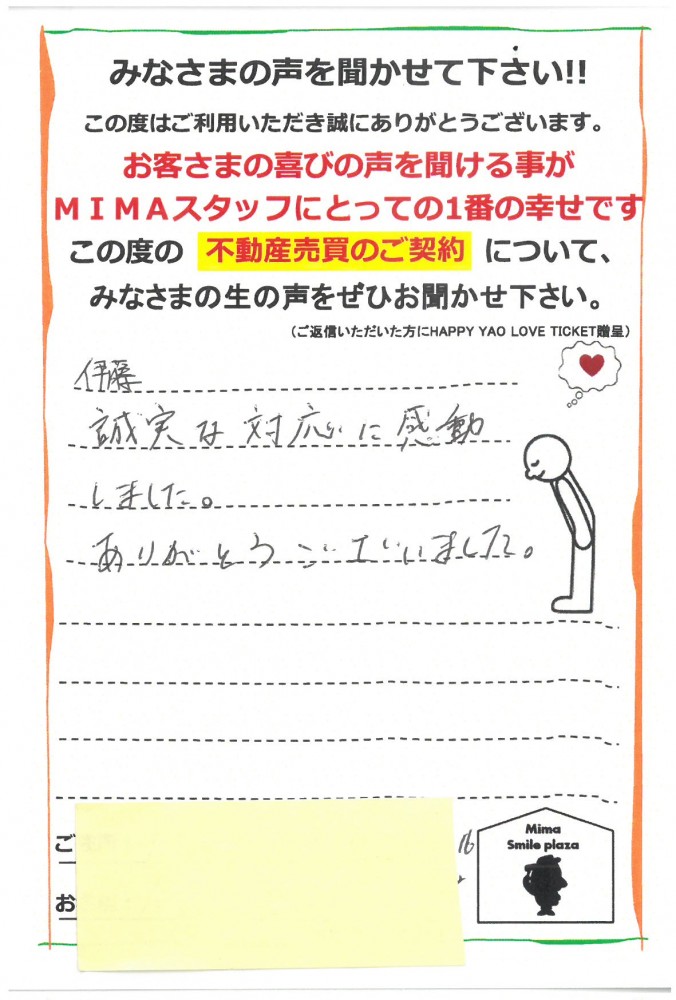 みなさまの声を聞かせて下さい!!
この度はご利用いただき誠にありがとうございます。
お客さまの喜びの声を聞ける事が
ＭＩＭＡスタッフにとっての1番の幸せです
この度の 不動産売買のご契約 について、
みなさまの生の声をぜひお聞かせ下さい。
（ご返信いただいた方にHAPPY YAO LOVE TICKET贈呈）
伊藤
誠実な対応に感動
しました。
ありがとうございました。
ご
16
お
Mima
Smile plaza